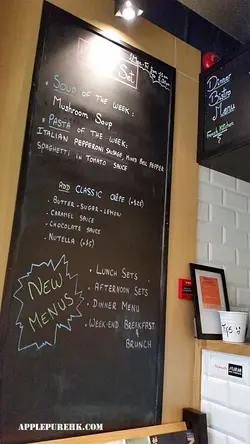 Set
· Soup of the week:
Mushroom Soup
· Pasta of the week:
Italian Pepperoni Sausage, mixed bell pepper
Spaghetti in Tomato sauce
Add Classic Crêpe
· Butter-Sugar-Lemon
· Caramel sauce
· Chocolate sauce
· Nutella
New
Menus
· Lunch Sets
· Afternoon Sets
· Dinner Menu
· Week-end Breakfast
& Brunch
Dinner
Bistro
Menu
TIPS
APPLEPUREHK.COM